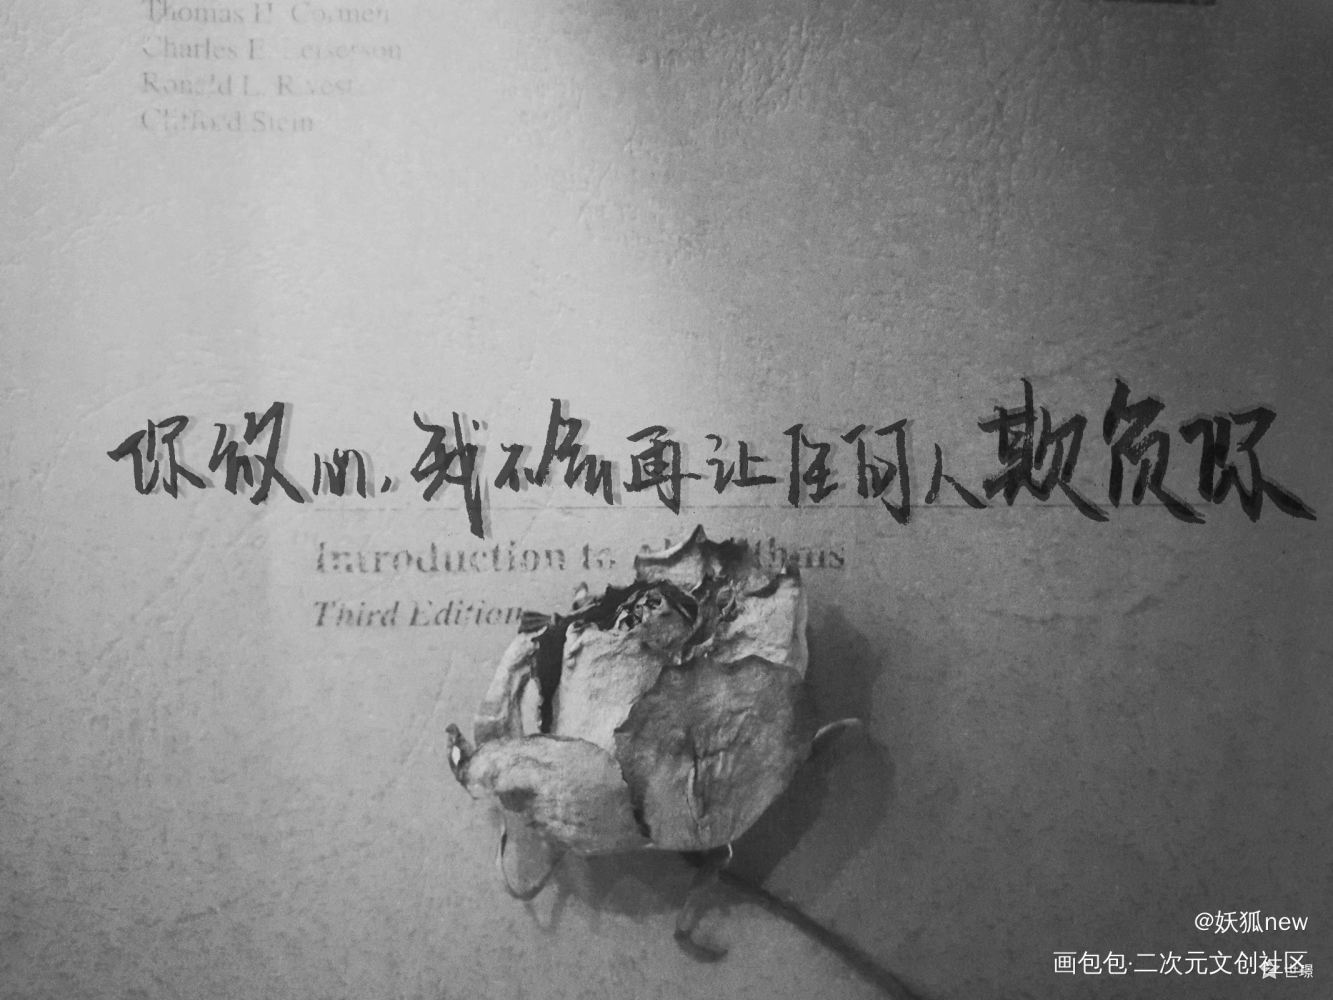 Thomas H. Cormen
Charles E. Leiserson
Ronald L. Rivest
Clifford Stein
你放心，我不会再让任何人欺负你
Introduction to Algorithms
Third Edition
@妖狐new
画包包·二次元文创社区
世璟